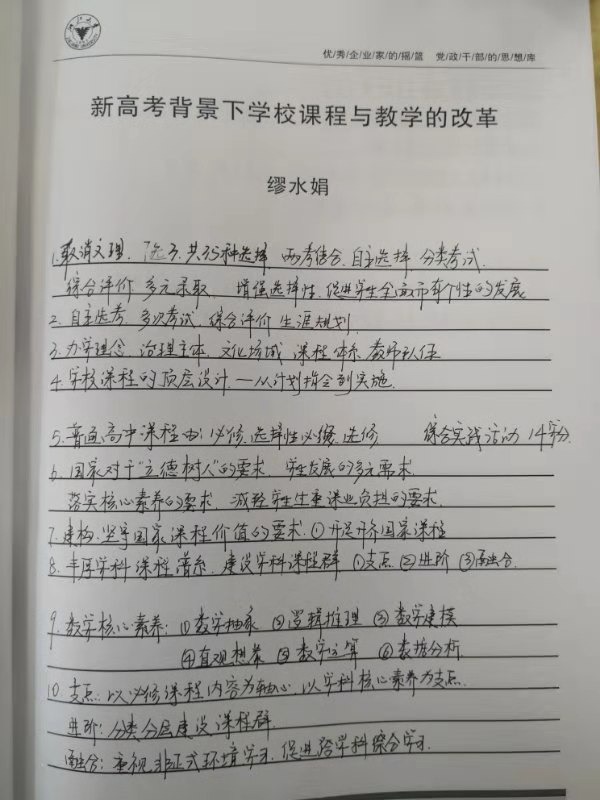 优/秀/企/业/家/的/摇/篮 党/政/干/部/的/思/想/库
新高考背景下学校课程与教学的改革
缪水娟
1.取消文理、7选3、共35种选择、两考结合、自主选择、分类考试、
综合评价 多元录取、增强选择性,促进学生全面而有个性的发展
2. 自主选考、多次考试、综合评价 生涯规划.
3. 办学理念、治理主体、文化场域 课程体系、教师队伍
4. 学校课程的顶层设计.—从计划指令到实施.
5. 普通高中课程由:必修、选择性必修、选修 综合实践活动 14学分
6. 国家对于“立德树人”的要求 学生发展的多元需求.
落实核心素养的要求、减轻学生过重课业负担的要求.
7. 建构、坚守国家课程价值的要求:①开足开齐国家课程
8. 丰厚学科课程谱系、建设学科课程群 ①支点 ②进阶 ③融合.
9. 数学核心素养: ①数学抽象 ②逻辑推理 ③数学建模
④直观想象 ⑤数学运算 ⑥数据分析.
10. 支点:以必修课程内容为轴心,以学科核心素养为支点.
进阶:分类分层建设课程群.
融合:重视非正式环境学习,促进跨学科综合学习.